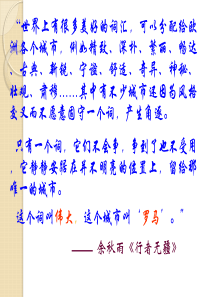 “世界上有很多美好的词汇，可以分配给欧
洲各个城市，例如精致、深朴、繁丽、畅达
、古典、新锐、宁谧、舒适、奇异、神秘、
壮观、肃穆……其中有不少城市还因为风格
交叉而不愿意固守一个词，产生角逐。
只有一个词，它们不会争，争到了也不受用
，它静静安踞在并不明亮的位置上，留给那
唯一的城市。
这个词叫伟大，这个城市叫‘罗马’。”
—— 余秋雨《行者无疆》